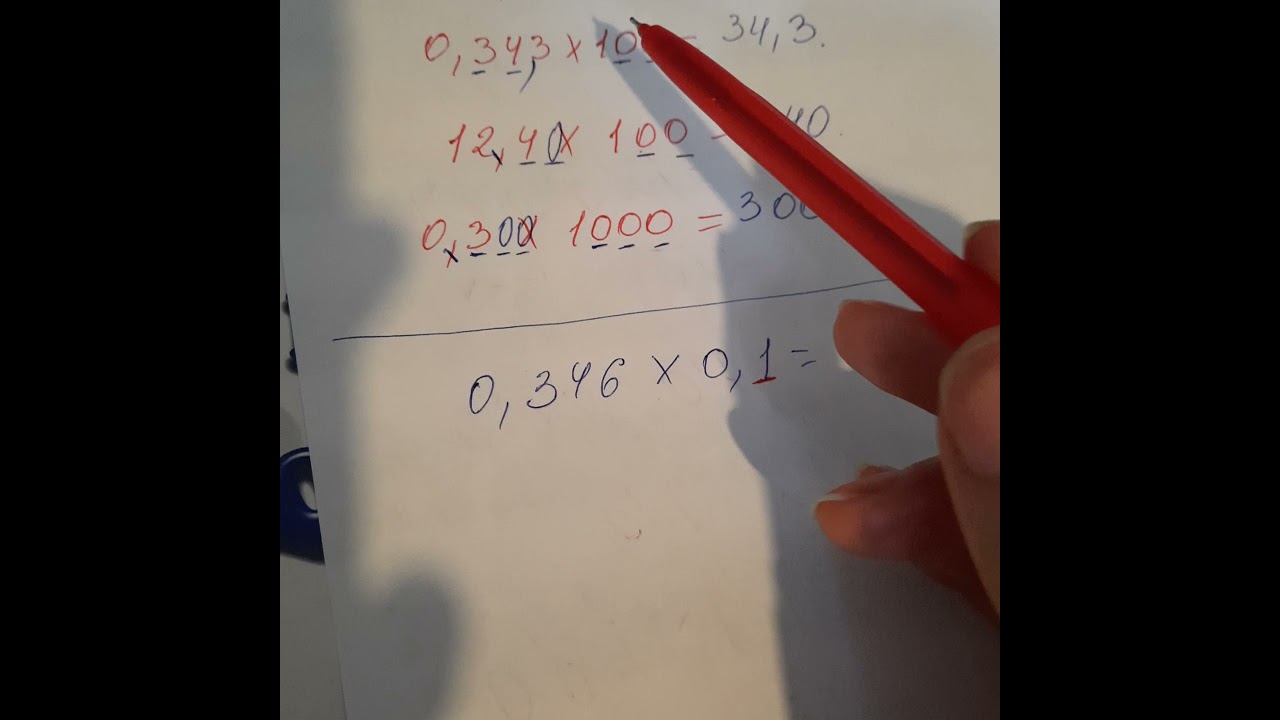 0,343 x 10 = 34,3.
12,40x 100 - 40.
0,300x 1000 = 300
0,346 x 0,1=